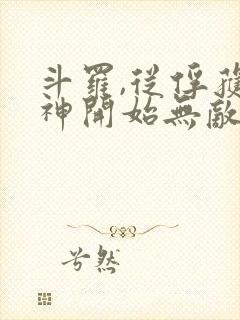 斗羅,從俘獲
神開始無敵
兮然